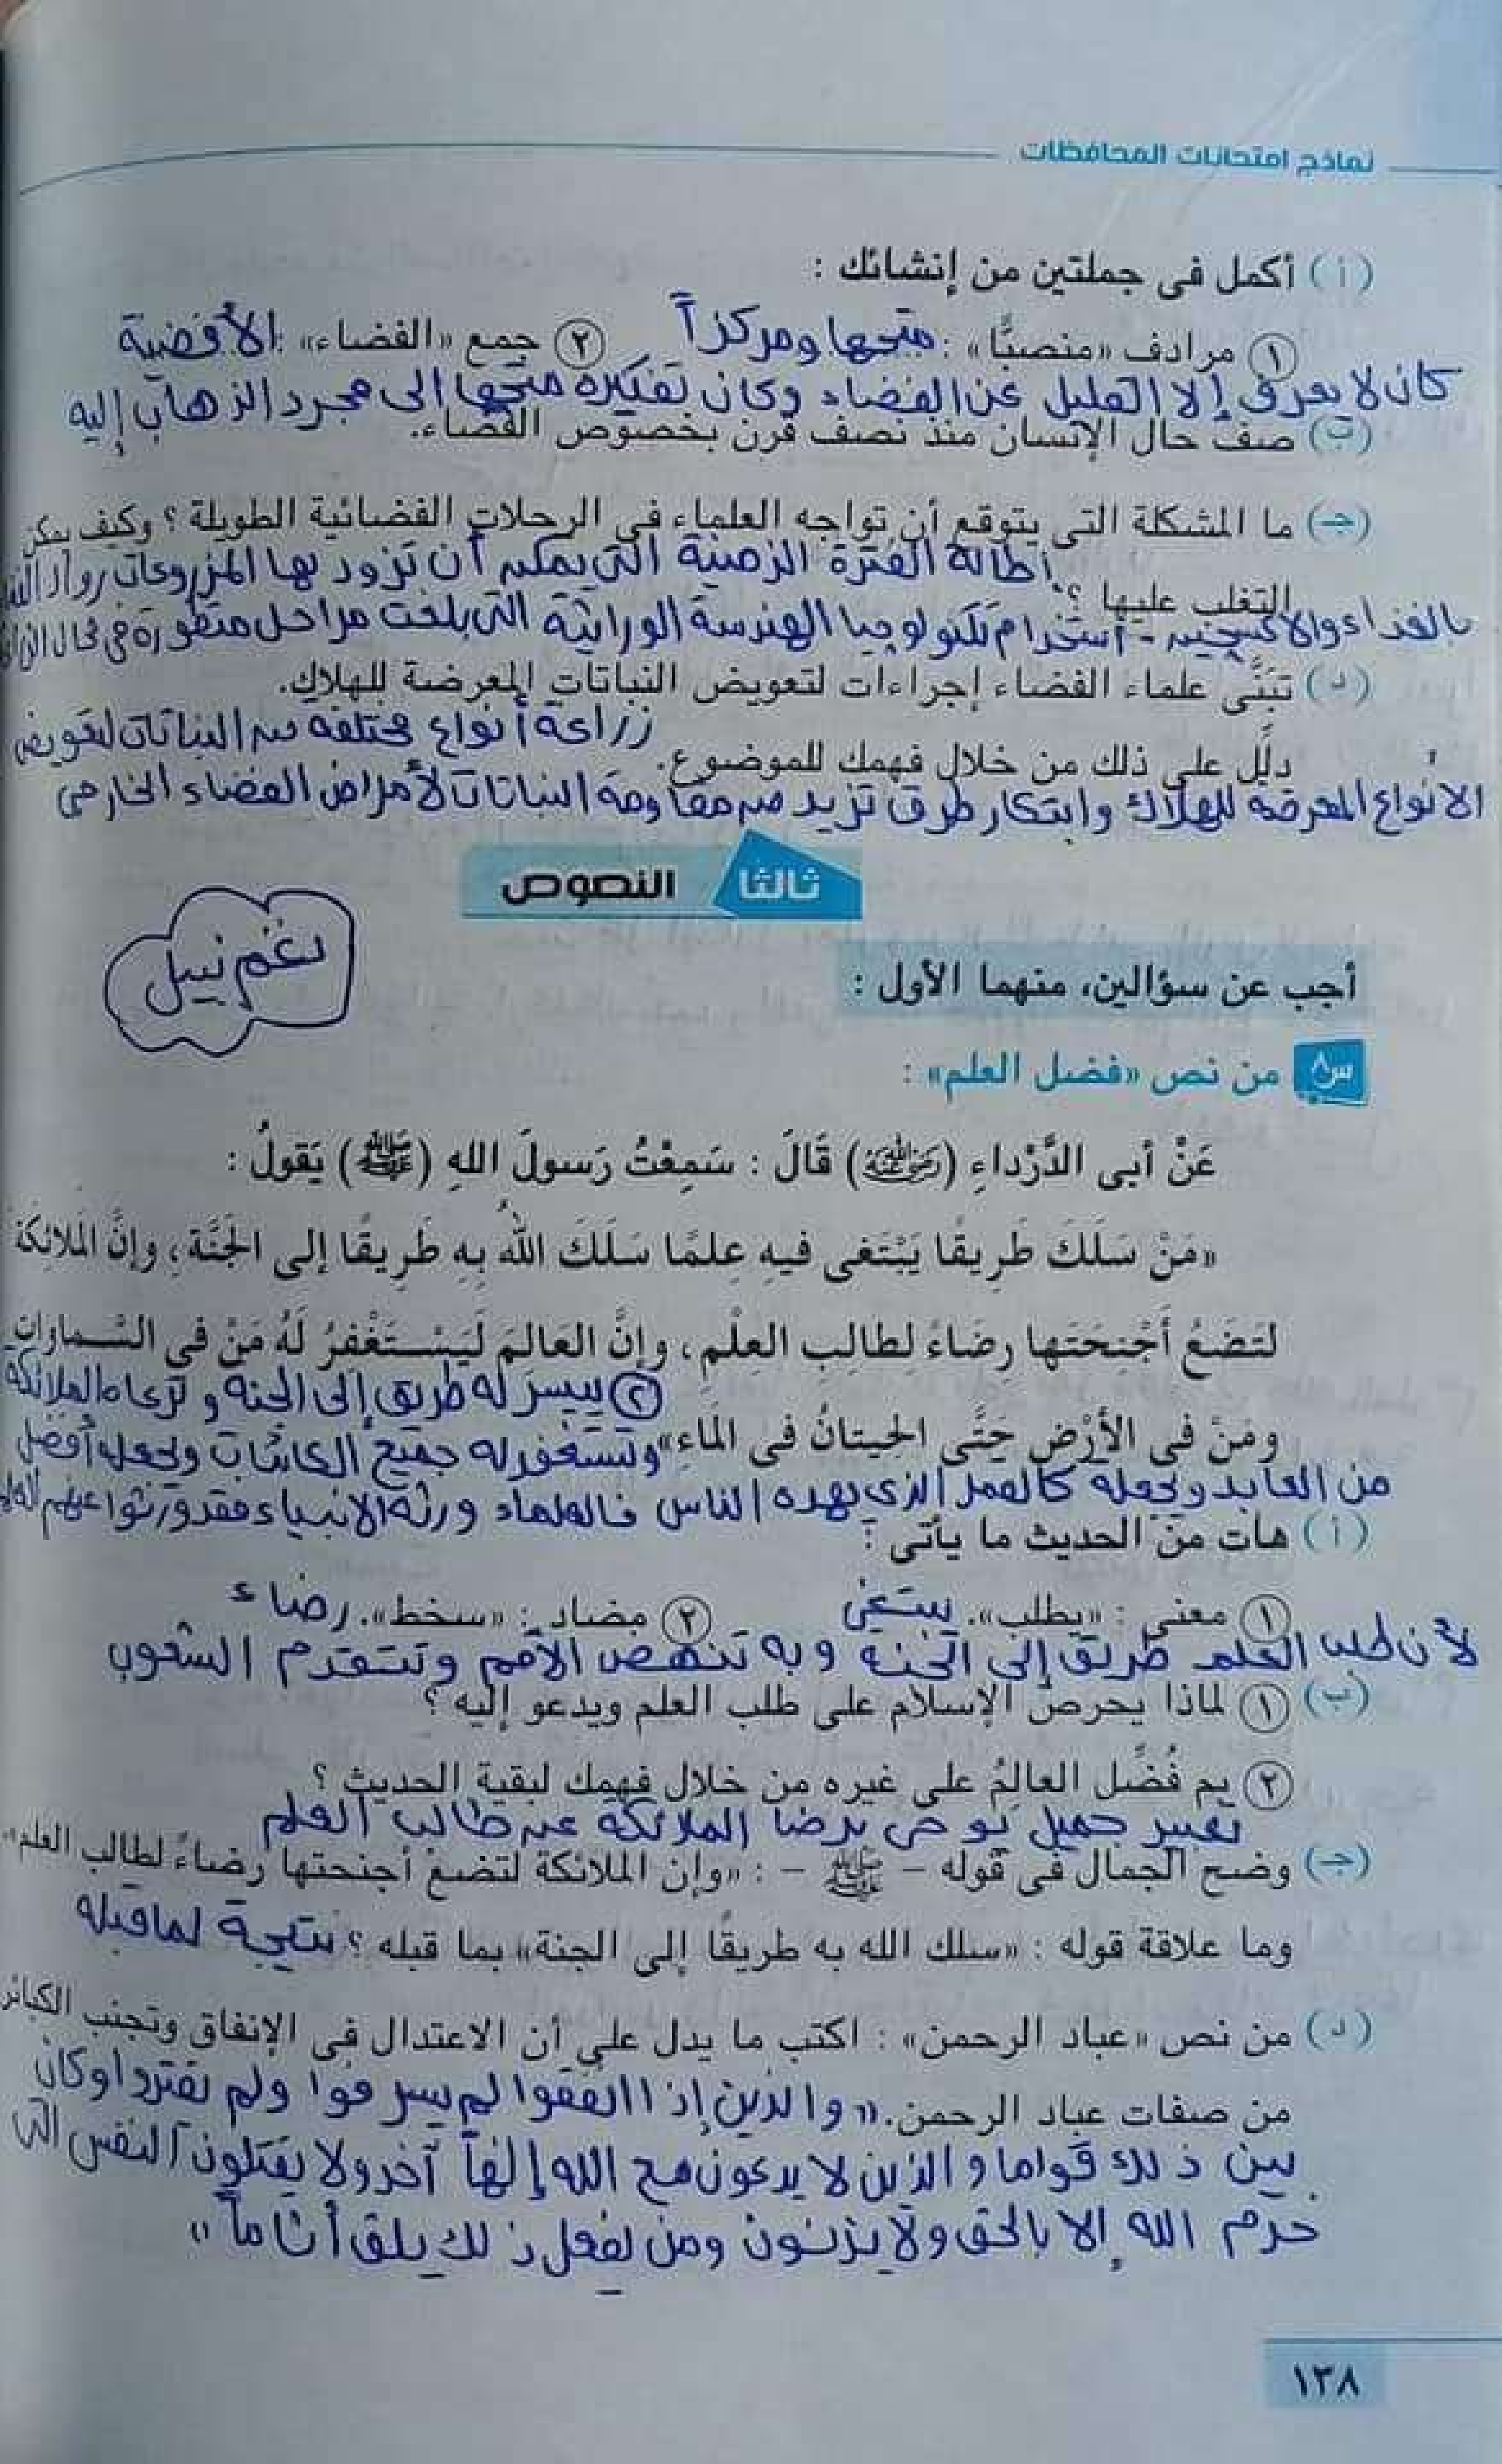 نماذج امتحانات المحافظات
( أ ) أكمل فى جملتين من إنشائك :
١ مرادف «منصبًّا» : متجها ومركزاً ٢ جمع «الفضاء» : الأفضية
كان لا يعرف إلا القليل عن الفضاء وكان تفكيره متجها إلى مجرد الذهاب إليه
(ب) صف حال الإنسان منذ نصف قرن بخصوص الفضاء.
(جـ) ما المشكلة التى يتوقع أن تواجه العلماء فى الرحلات الفضائية الطويلة ؟ وكيف يمكن
إطالة الفترة الزمنية التى يمكن أن تزود بها المزروعات رواد
التغلب عليها ؟
بالغذاء والاكسجين - استخدام تكنولوجيا الهندسة الوراثية التى بلغت مراحل متطورة فى مجال
(د) تبَنَّى علماء الفضاء إجراءات لتعويض النباتات المعرضة للهلاك.
زراعة أنواع مختلفة من النباتات لتعويض
دلِّل على ذلك من خلال فهمك للموضوع.
الأنواع المعرضة للهلاك وابتكار طرق تزيد من مقاومة النباتات لأمراض الفضاء الخارجى
ثالثا النصوص
نغم نبيل
أجب عن سؤالين، منهما الأول :
س٨ من نص «فضل العلم» :
عَنْ أبى الدَّرْداءِ (رضي الله عنه) قَالَ : سَمِعْتُ رَسولَ اللهِ (ﷺ) يَقولُ :
«مَنْ سَلَكَ طَرِيقًا يَبْتَغى فيهِ عِلمًا سَلَكَ اللهُ بِهِ طَرِيقًا إلى الجَنَّة، وإنَّ المَلائِكَةَ
لتَضَعُ أَجْنِحَتَها رِضَاءً لطالِبِ العِلْمِ، وإنَّ العَالمَ لَيَسْتَغْفِرُ لَهُ مَنْ فى السَّماواتِ
٢ ييسر له طريق إلى الجنة و ترعاه الملائكة
ومَنْ فى الأرْضِ حَتَّى الحِيتانُ فى المَاءِ» وتستغفر له جميع الكائنات وتجعله أفضل
من العابد وتجعله كالقمر الذى يهده الناس فالعلماء ورثة الانبياء فقد ورثوا عنهم
( أ ) هات من الحديث ما يأتى :
١ معنى : «يطلب». يبتغى ٢ مضاد : «سخط». رضاء
لأن طلب العلم طريق إلى الجنة وبه تنهض الأمم وتتقدم الشعوب
(ب) ١ لماذا يحرص الإسلام على طلب العلم ويدعو إليه ؟
٢ بم فُضِّل العالمُ على غيره من خلال فهمك لبقية الحديث ؟
تعبير جميل يوحى برضا الملائكة عن طالب العلم
(جـ) وضح الجمال فى قوله – ﷺ – : «وإن الملائكة لتضعُ أجنحتها رضاءً لطالب العلم»،
وما علاقة قوله : «سلك الله به طريقًا إلى الجنة» بما قبله ؟ نتيجة لما قبله
(د) من نص «عباد الرحمن» : اكتب ما يدل على أن الاعتدال فى الإنفاق وتجنب الكبائر
من صفات عباد الرحمن. «والذين إذا انفقوا لم يسرفوا ولم يقتروا وكان
بين ذلك قواما والذين لا يدعون مع الله إلهاً آخر ولا يقتلون النفس التى
حرم الله إلا بالحق ولا يزنون ومن يفعل ذلك يلق أثاماً»
١٣٨